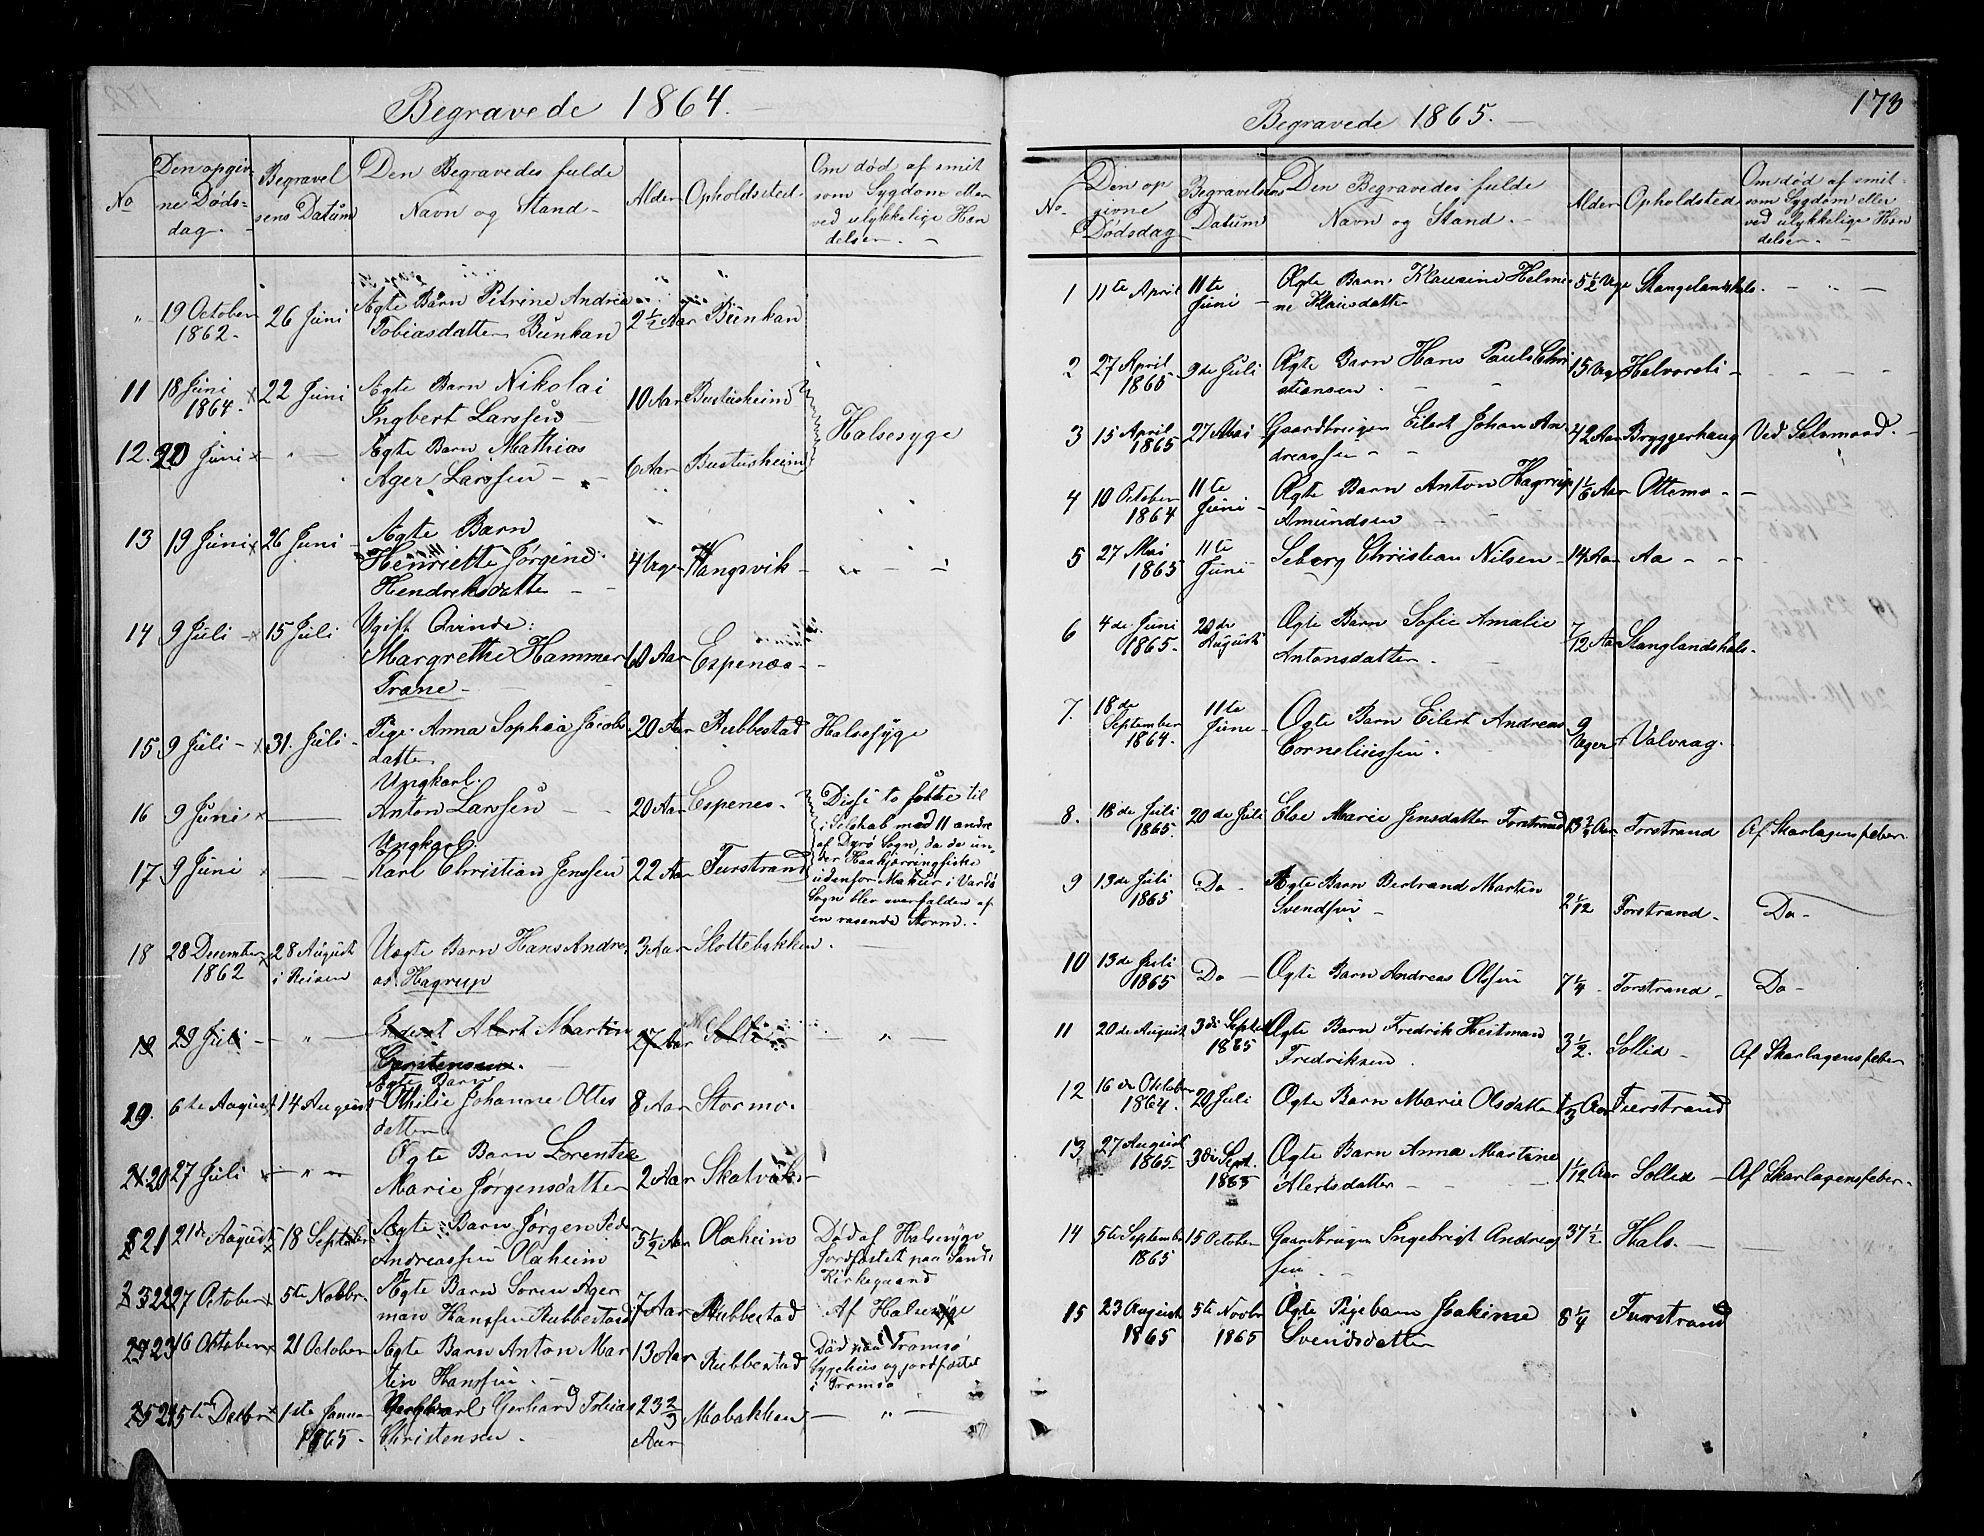 Begravede 1864.
No
Den opgiv
ne Døds-
dag.
Begravel
sens Datum
Den Begravedes fulde
Navn og Stand
Alder
Opholdsted
Om død af smit
som Sygdom eller
ved ulykkelige Hæn
delser.
" 19 October 26 Juni Ægte Barn Petrine Andrea 2 1/2 Aar Bunkan
1862 Tobiasdatter Bunkan
11 18 Juni x 22 Juni Ægte Barn Nikolai 10 Aar Bustusheim
1864. Ingbert Larssen Halsesyge
12. 20 Juni x - " - Ægte Barn Mathias 6 Aar Bustusheim
Ager Larssen
13 19 Juni x 26 Juni Ægte Barn
Henriette Jørgine 4 Uger Vangsvik - " - "
Hendreksdatter
14 9 Juli x 15 Juli Ugift Qvinde:
Margrethe Hammer 60 Aar Espenæs
Trane
15 9 Juli x 31. Juli Pige Anna Sophia Jacobs 20 Aar Rubbestad Halsesyge
datter
Ungkarl.
16 9 Juni x Anton Larssen 20 Aar Espenes Disse to satte til
i Selskab med 11 andre
af Dyrø Sogn, da de un-
Ungkarl
17 9 Juni x Karl Christian Jenssen 22 Aar Furstrand der Haakjærringfiske
udenfor Makur i Vardø
Sogn blev overfalden af
en rasende Storm.
18 28 December x 28 August Uægte Barn Hans Andre 3 Aar Slottebakken.
1862 i Reisen as Hagrup
19 29 Juli - " - Alert Martin 27 Aar Solli - " -
Carstensen.
Ægte Barn
19. 6te August x 14 August Othilie Johanne Ottes 8 Aar Stormo.
datter
20 27 Juli x - " - Ægte Barn Lorentze
Marie Jørgensdatter 2 Aar Skatvik
21 21de August x 18 Septebr. Ægte Barn Jørgen Peder 5 1/2 Aar Olaheim Død af Halsesyge
Andreassen Olaheim jordfæstet paa Sands
Kirkegaard
22 27 October x 5te Novbr. Ægte Barn Søren Ager 7 Aar Rubbestad Af Halsesyge
man Hanssen Rubbestad
23 16 Oktober x 21 October Ægte Barn Anton Mar 13 Aar Rubbestad Død paa Tromsø
tin Hanssen Sygehus og jordfæstet
i Tromsø
25 24 5te Decbr x 1ste Janua Ungkarl Gerhard Tobias 23 2/3 Mobakken - " -
1865. Christensen Aar
173
Begravede 1865.
No.
Den op
givne
Dødsdag
Begravelses
Datum
Den Begravedes fulde
Navn og Stand.
Alder
Opholdsted
Om død af smit-
som Sygdom eller
ved ulykkelige Hæn
delser.
1 11te April 11te Ægte Barn Klausine Helmi 5 1/2 Uge Stangelandshals.
Juni ne Klausdatter
2 27 April 9de Juli Ægte Barn Hans Pauls Chri 15 Uger Halvorsli
1865 stiansen.
3 15 April 27 Mai Gaardbruger Eilert Johan An 42 Aar Bryggerhaug Ved Selvmord.
1865 dreassen
4 10 October 11te Ægte Barn Anton Hagrup 1 1/6 Aar Ottemo
1864 Juni Amundsen
5 27 Mai 11te Seberg Christian Nilsen 14 Aar Aa
1865 Juni
6 4de Juni 20de Ægte Barn Sofie Amalie 7/12 Aar Stanglandshals.
1865. August Antonsdatter
7. 18de 11te Ægte Barn Eilert Andreas 9 Valvaag.
September Juni Corneliussen. Uger
1864.
8. 18de Juli 20de Juli Else Marie Jensdatter Forstrand Aar Forstrand Af Skarlagensfeber
1865.
9 13de Juli Do Ægte Barn Bertrand Martin 2 1/12 Forstrand Do
1865 Svendsen
10 13de Juli Do Ægte Barn Andreas Olssen 7 1/4 Forstrand Do
1865
11 20de August 3die Septe Ægte Barn Fredrik Heitman 3 1/2. Sollid Af Skarlagensfeber
1865 Fredriksen
12 16de Oktober 20 Juli Ægte Barn Marie Olsdatter 1/3 Aar Furstrand
1864.
13 27 August 3die Sept. Ægte Barn Anna Martine 1 1/12 Aar Sollid Af Skarlagensfeber
1865 1865 Alertsdatter
14 5te September 15 October Gaardbruger Ingebrigt Andreas 37 1/2 Hals.
1865 sen
15 23 August 5te Novbr Ægte Pigebarn Joakime 8 1/4 Furstrand
1865 1865 Svendsdatter